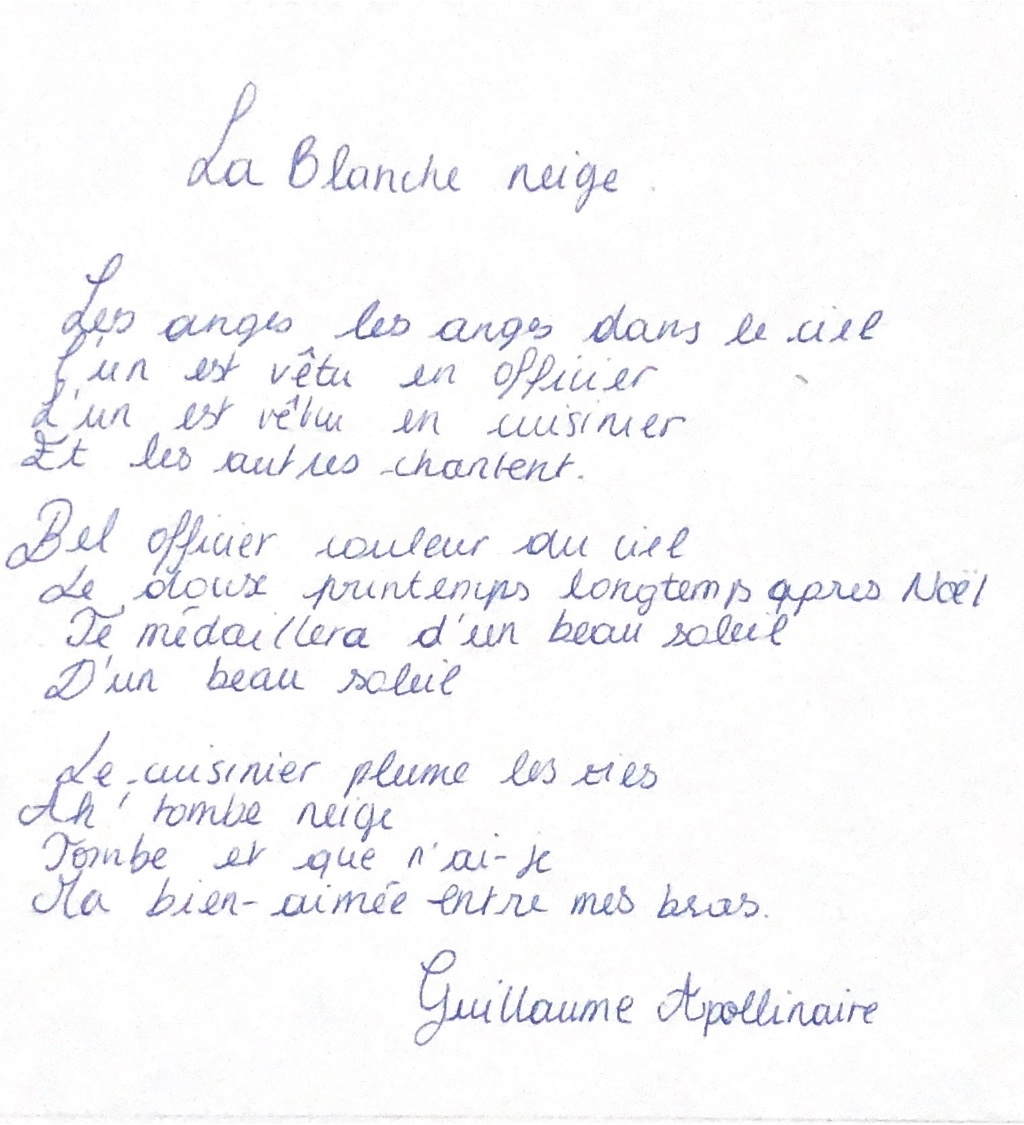 La Blanche neige
Les anges les anges dans le ciel
L'un est vêtu en officier
L'un est vêtu en cuisinier
Et les autres chantent.
Bel officier couleur du ciel
Le doux printemps longtemps apres Noël
Te médaillera d'un beau soleil
D'un beau soleil
Le cuisinier plume les oies
Ah! tombe neige
Tombe et que n'ai-je
Ma bien-aimée entre mes bras.
Guillaume Apollinaire